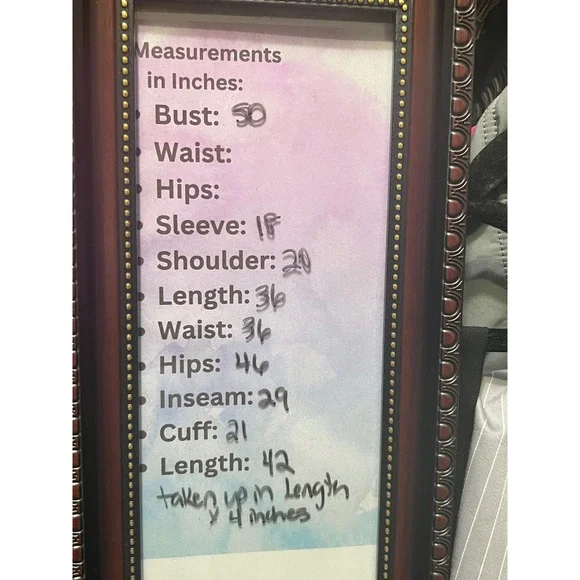 Measurements
in Inches:
• Bust: 50
• Waist:
• Hips:
• Sleeve: 18
• Shoulder: 20
• Length: 36
• Waist: 36
• Hips: 46
• Inseam: 29
• Cuff: 21
• Length: 42
taken up in Length
x 4 inches